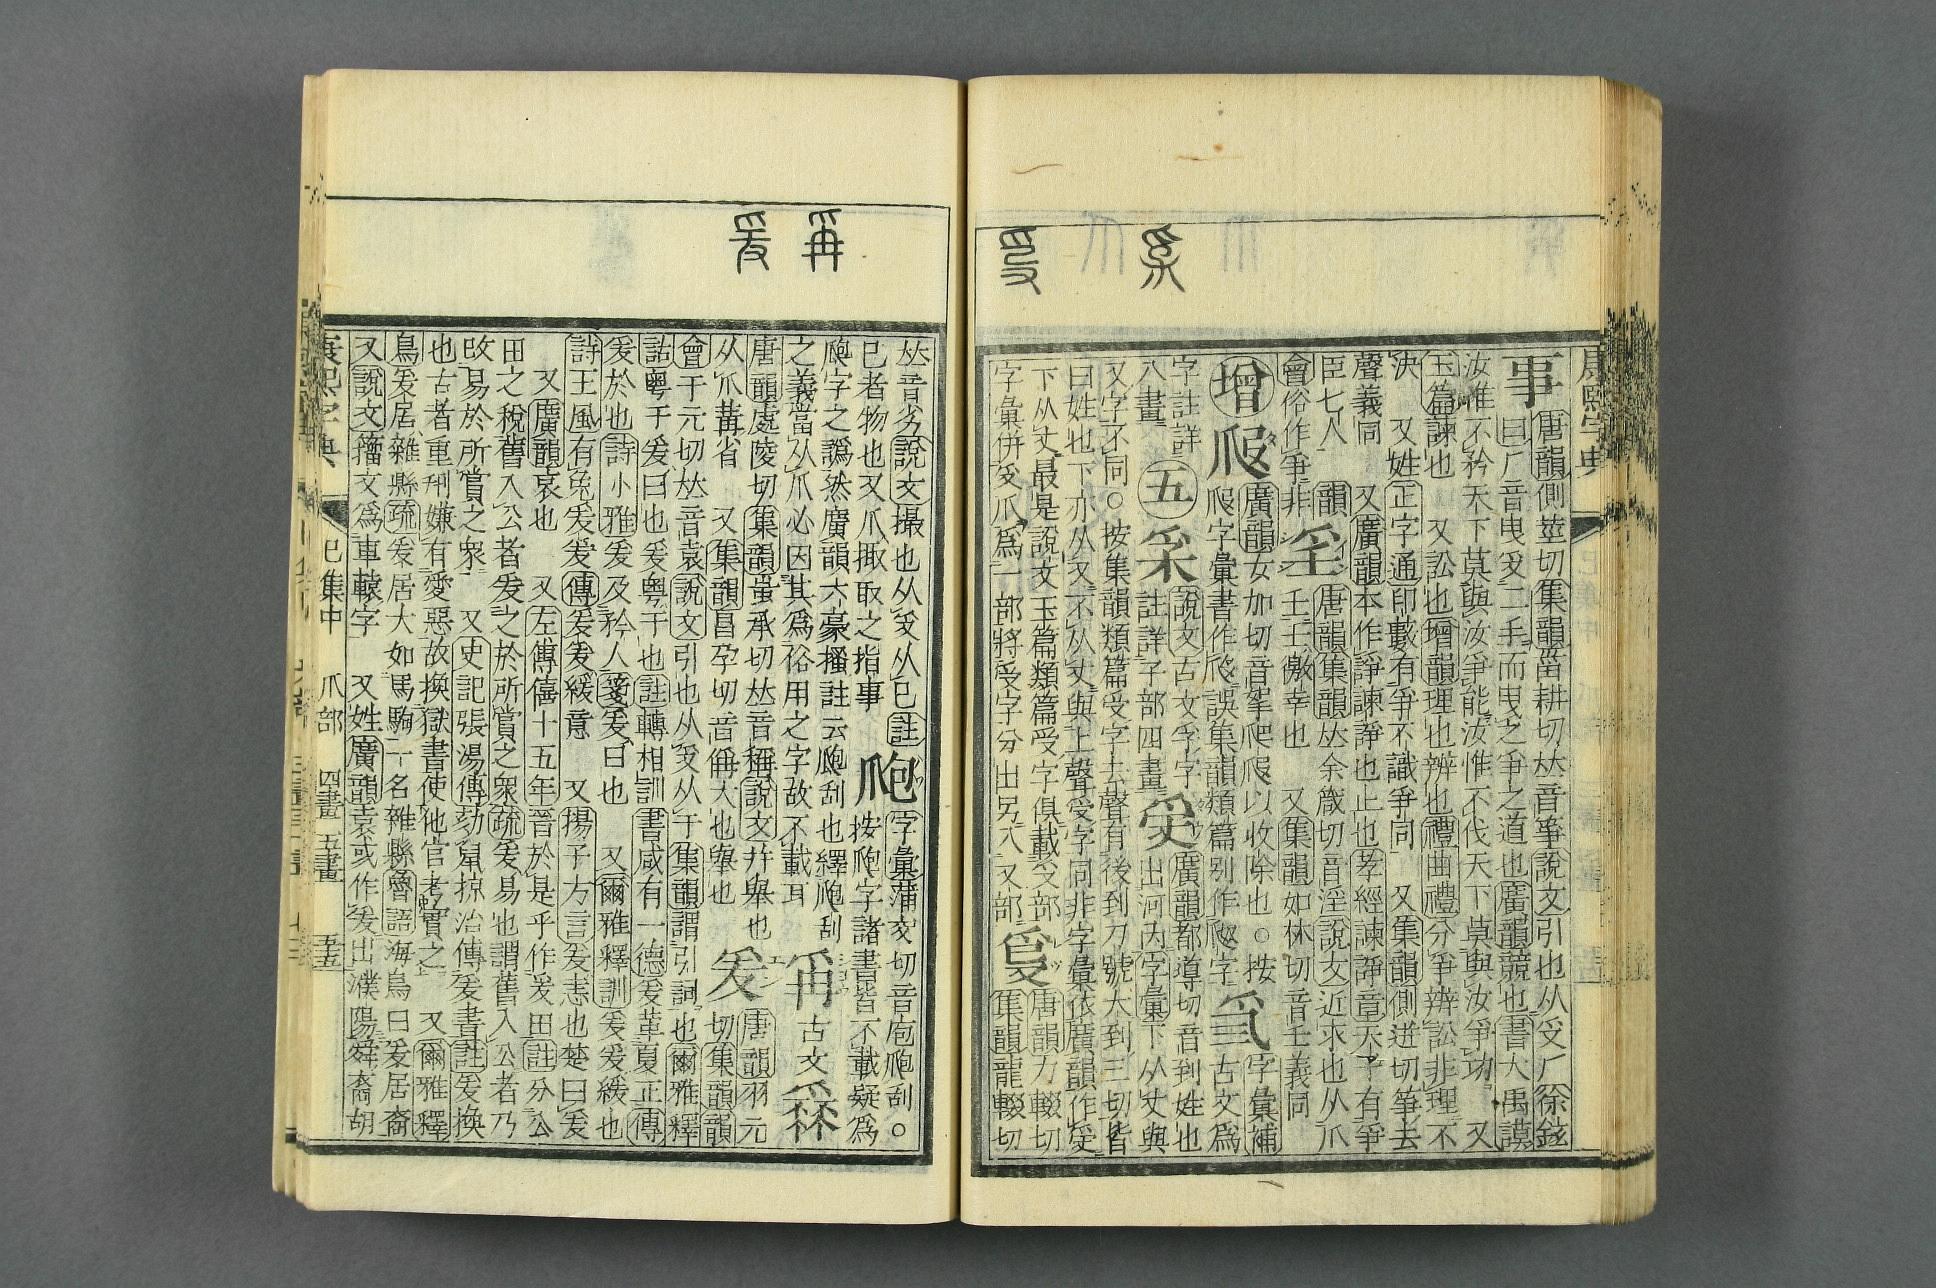 爭 唐韻側莖切集韻甾耕切𠀤音箏說文引也从𠬪厂徐鉉
曰厂音曳𠬪二手而曳之爭之道也廣韻競也書大禹謨
汝惟不矜天下莫與汝爭能汝惟不伐天下莫與汝爭功 又
玉篇諫也 又訟也增韻理也辨也禮曲禮分爭辨訟非理不
決 又姓正字通印藪有爭不識爭同 又集韻側迸切箏去
聲義同 又廣韻本作諍諫諍也止也孝經諫諍章天子有爭
臣七人 韻
會俗作爭非 㸒 唐韻集韻𠀤余箴切音淫說文近求也从爪
壬壬徼幸也 又集韻如林切音壬義同
增 廣韻女加切音拏
以收除也○按
字彙書作
誤集韻類篇別作
字彙補
古文爲
字註詳
八畫 五 說文古文孚字
註詳子部四畫 廣韻都導切音到姓也
出河內字彙下从丈與
又字不同○按集韻類篇受字去聲有後到刀號大到三切皆
曰姓也下亦从又不从丈與上聲受字同非字彙依廣韻作受
下从丈最是說文玉篇類篇受字俱載𠬪部 唐韻力輟切
字彙併𠬪爪爲一部將受字分出另入又部 𤔔 集韻龍輟切
𠀤音劣說文撮也从𠬪从己註
己者物也又爪掫取之指事 爮 字彙蒲交切音庖爮刮○
按爮字諸書皆不載疑爲
字之譌然廣韻六豪搔註云爮刮也繹爮刮
之義當从爪必因其爲俗用之字故不載耳 爯 古文
唐韻處陵切集韻蚩承切𠀤音稱說文幷舉也
从爪冓省 又集韻昌孕切音偁大也舉也 爰 唐韻羽元
切集韻韻
會于元切𠀤音袁說文引也从𠬪从于集韻謂引詞也爾雅釋
詁粵于爰曰也爰粵于也註轉相訓 書咸有一德爰革夏正傳
爰於也詩小雅爰及矜人箋爰曰也 又爾雅釋訓爰爰緩也
詩王風有兔爰爰傳爰爰緩意 又揚子方言爰恚也楚曰爰
又廣韻哀也 又左傳僖十五年晉於是乎作爰田註分公
田之稅舊入公者爰之於所賞之衆疏爰易也謂舊入公者乃
改易於所賞之衆 又史記張湯傳劾鼠掠治傳爰書註爰換
也古者重刑嫌有愛惡故換獄書使他官考實之 又爾雅釋
鳥爰居雜縣疏爰居大如馬駒一名雜縣魯語海鳥曰爰居裔
又說文籀文爲車轅字 又姓廣韻袁或作爰出濮陽舜裔胡
康熙字典 巳集中 爪部 四畫 五畫 五五